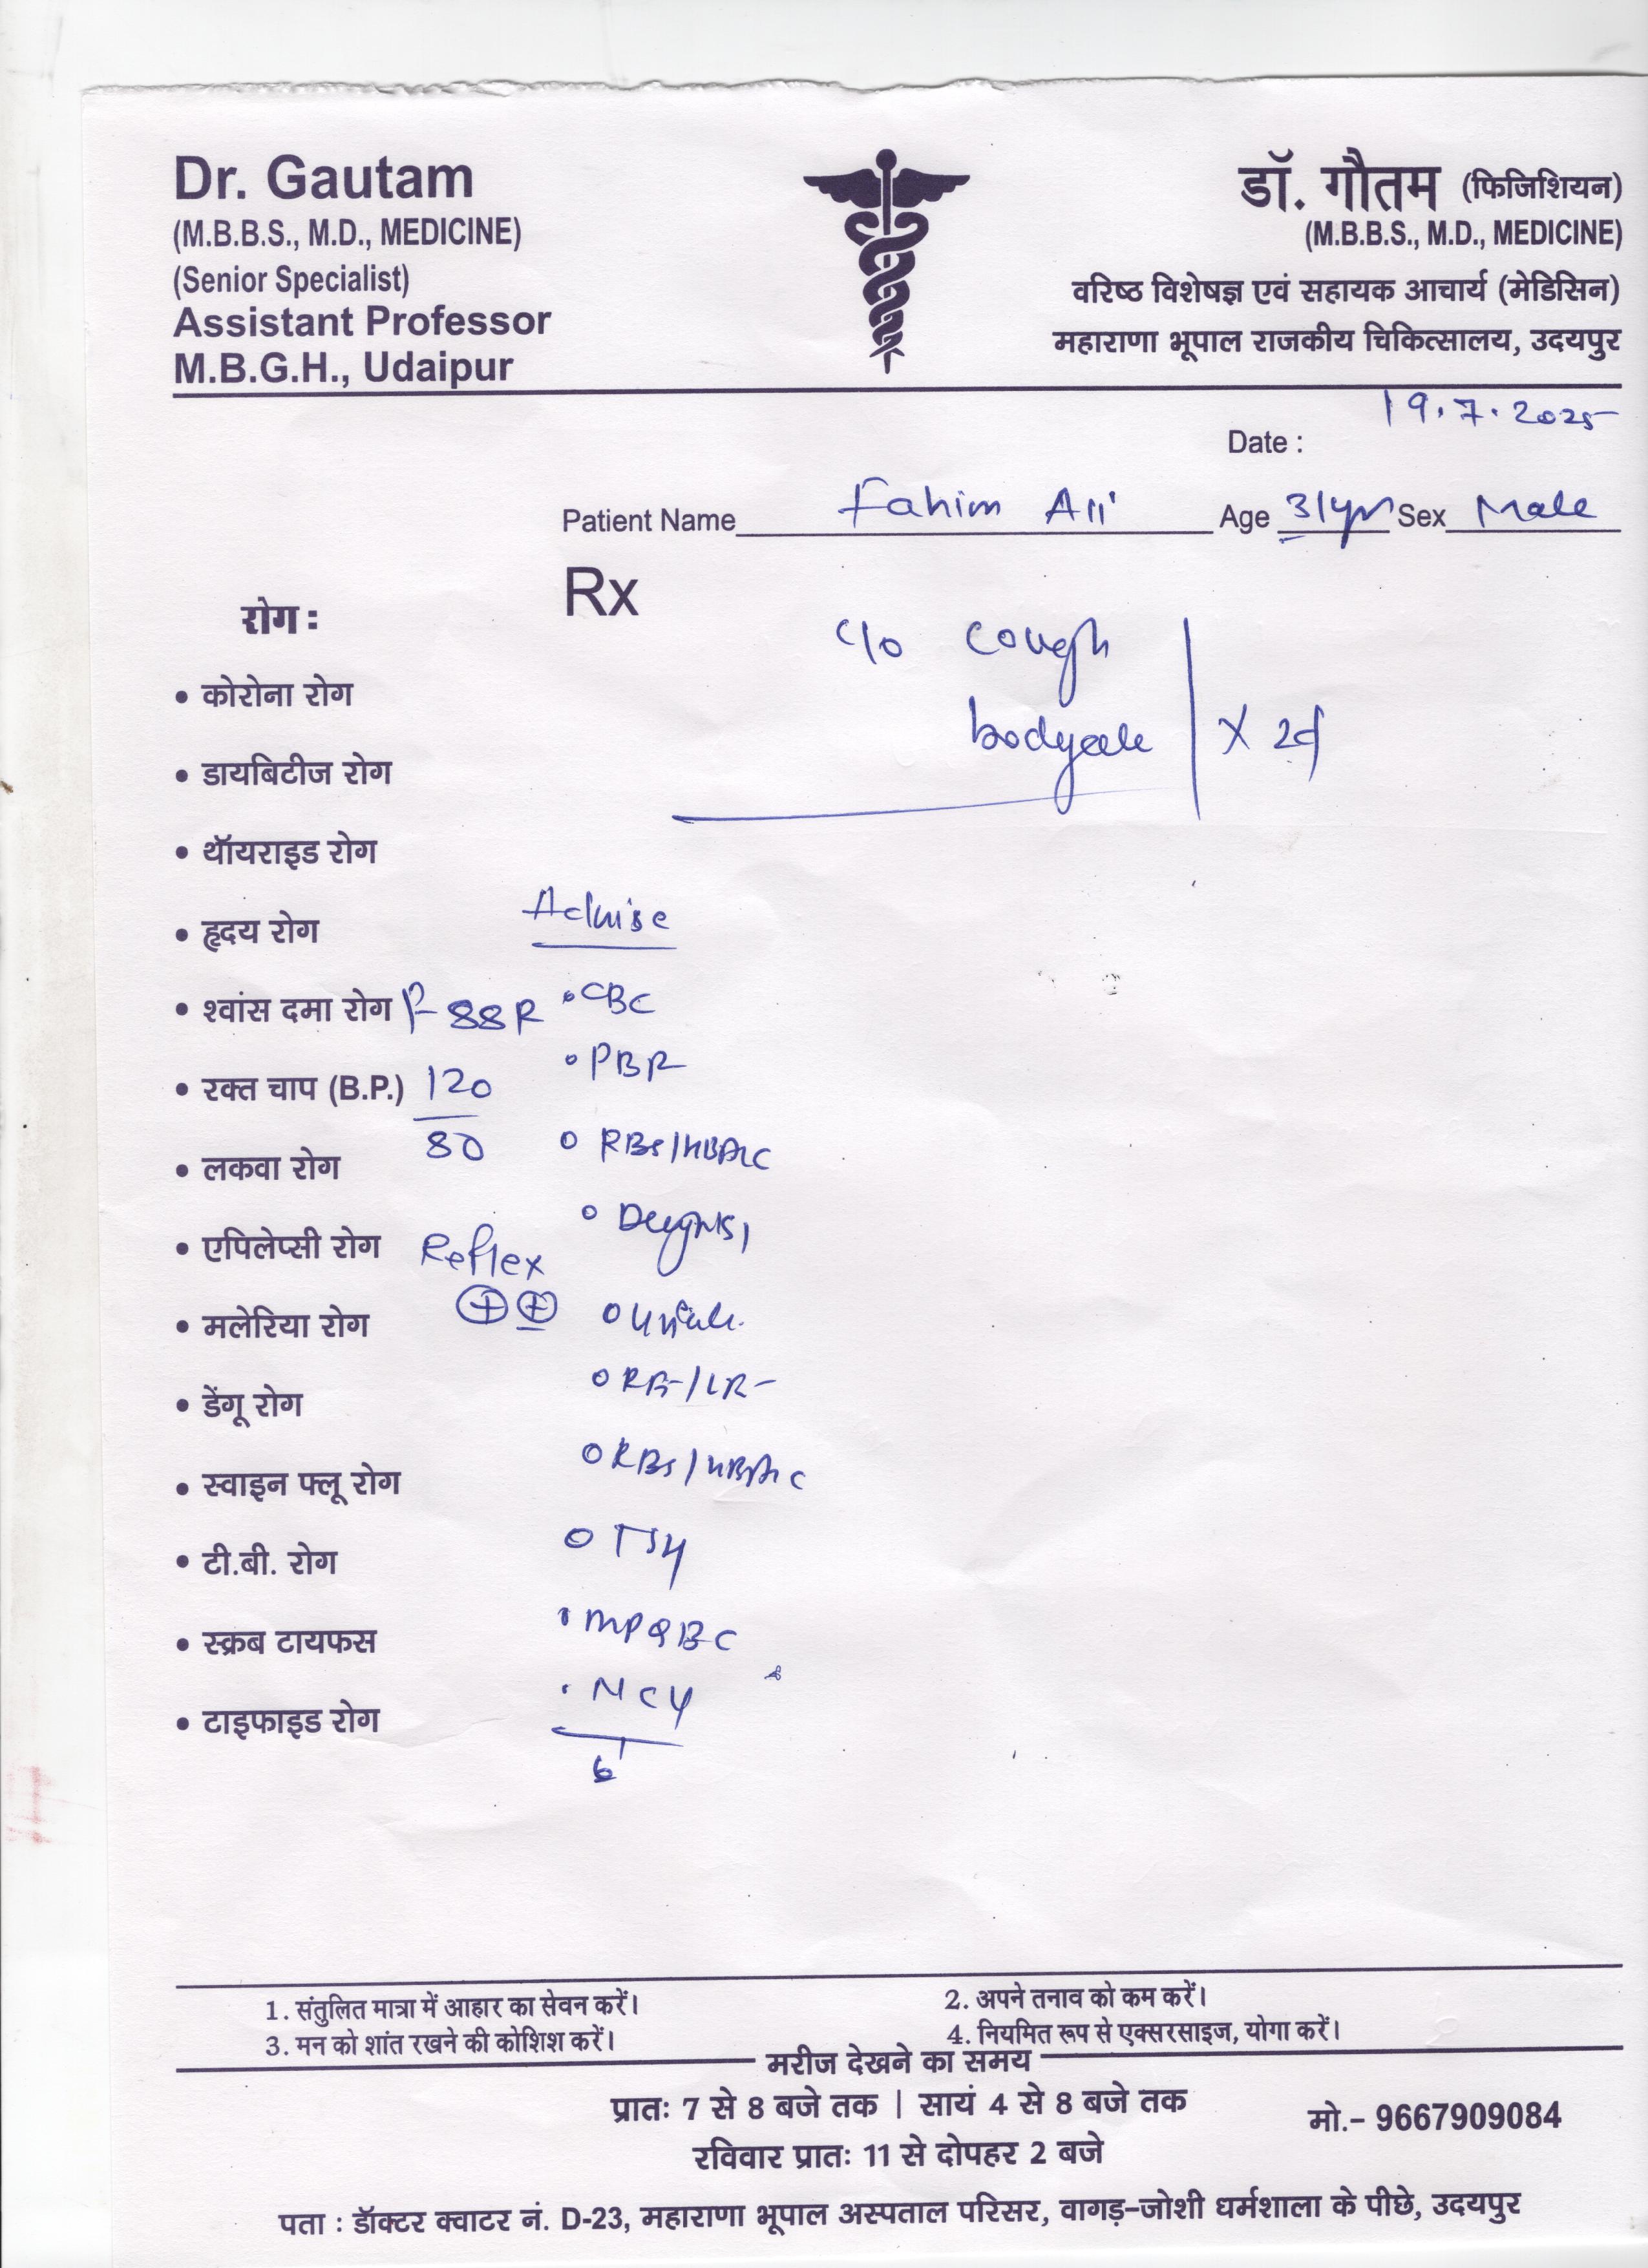 Dr. Gautam
(M.B.B.S., M.D., MEDICINE)
(Senior Specialist)
Assistant Professor
M.B.G.H., Udaipur
डॉ. गौतम (फिजिशियन)
(M.B.B.S., M.D., MEDICINE)
वरिष्ठ विशेषज्ञ एवं सहायक आचार्य (मेडिसिन)
महाराणा भूपाल राजकीय चिकित्सालय, उदयपुर
Date : 19.7.2025
Patient Name Fahim Ali Age 31yrs Sex Male
Rx
c/o cough
x 2d
रोग :
• कोरोना रोग
• डायबिटीज रोग
• थॉयराइड रोग
• हृदय रोग
• श्वांस दमा रोग P- 88 R
• रक्त चाप (B.P.) 120
80
• लकवा रोग
• एपिलेप्सी रोग Reflex
• मलेरिया रोग
• डेंगू रोग
• स्वाइन फ्लू रोग
• टी.बी. रोग
• स्क्रब टायफस
• टाइफाइड रोग
Advise
• CBC
RBS/HBA1C
RBS/HBA1C
TSH
• MPQBC
1. संतुलित मात्रा में आहार का सेवन करें।
2. अपने तनाव को कम करें।
3. मन को शांत रखने की कोशिश करें।
4. नियमित रूप से एक्सरसाइज, योगा करें।
मरीज देखने का समय
प्रातः 7 से 8 बजे तक | सायं 4 से 8 बजे तक
रविवार प्रातः 11 से दोपहर 2 बजे
मो.- 9667909084
पता : डॉक्टर क्वाटर नं. D-23, महाराणा भूपाल अस्पताल परिसर, वागड़-जोशी धर्मशाला के पीछे, उदयपुर